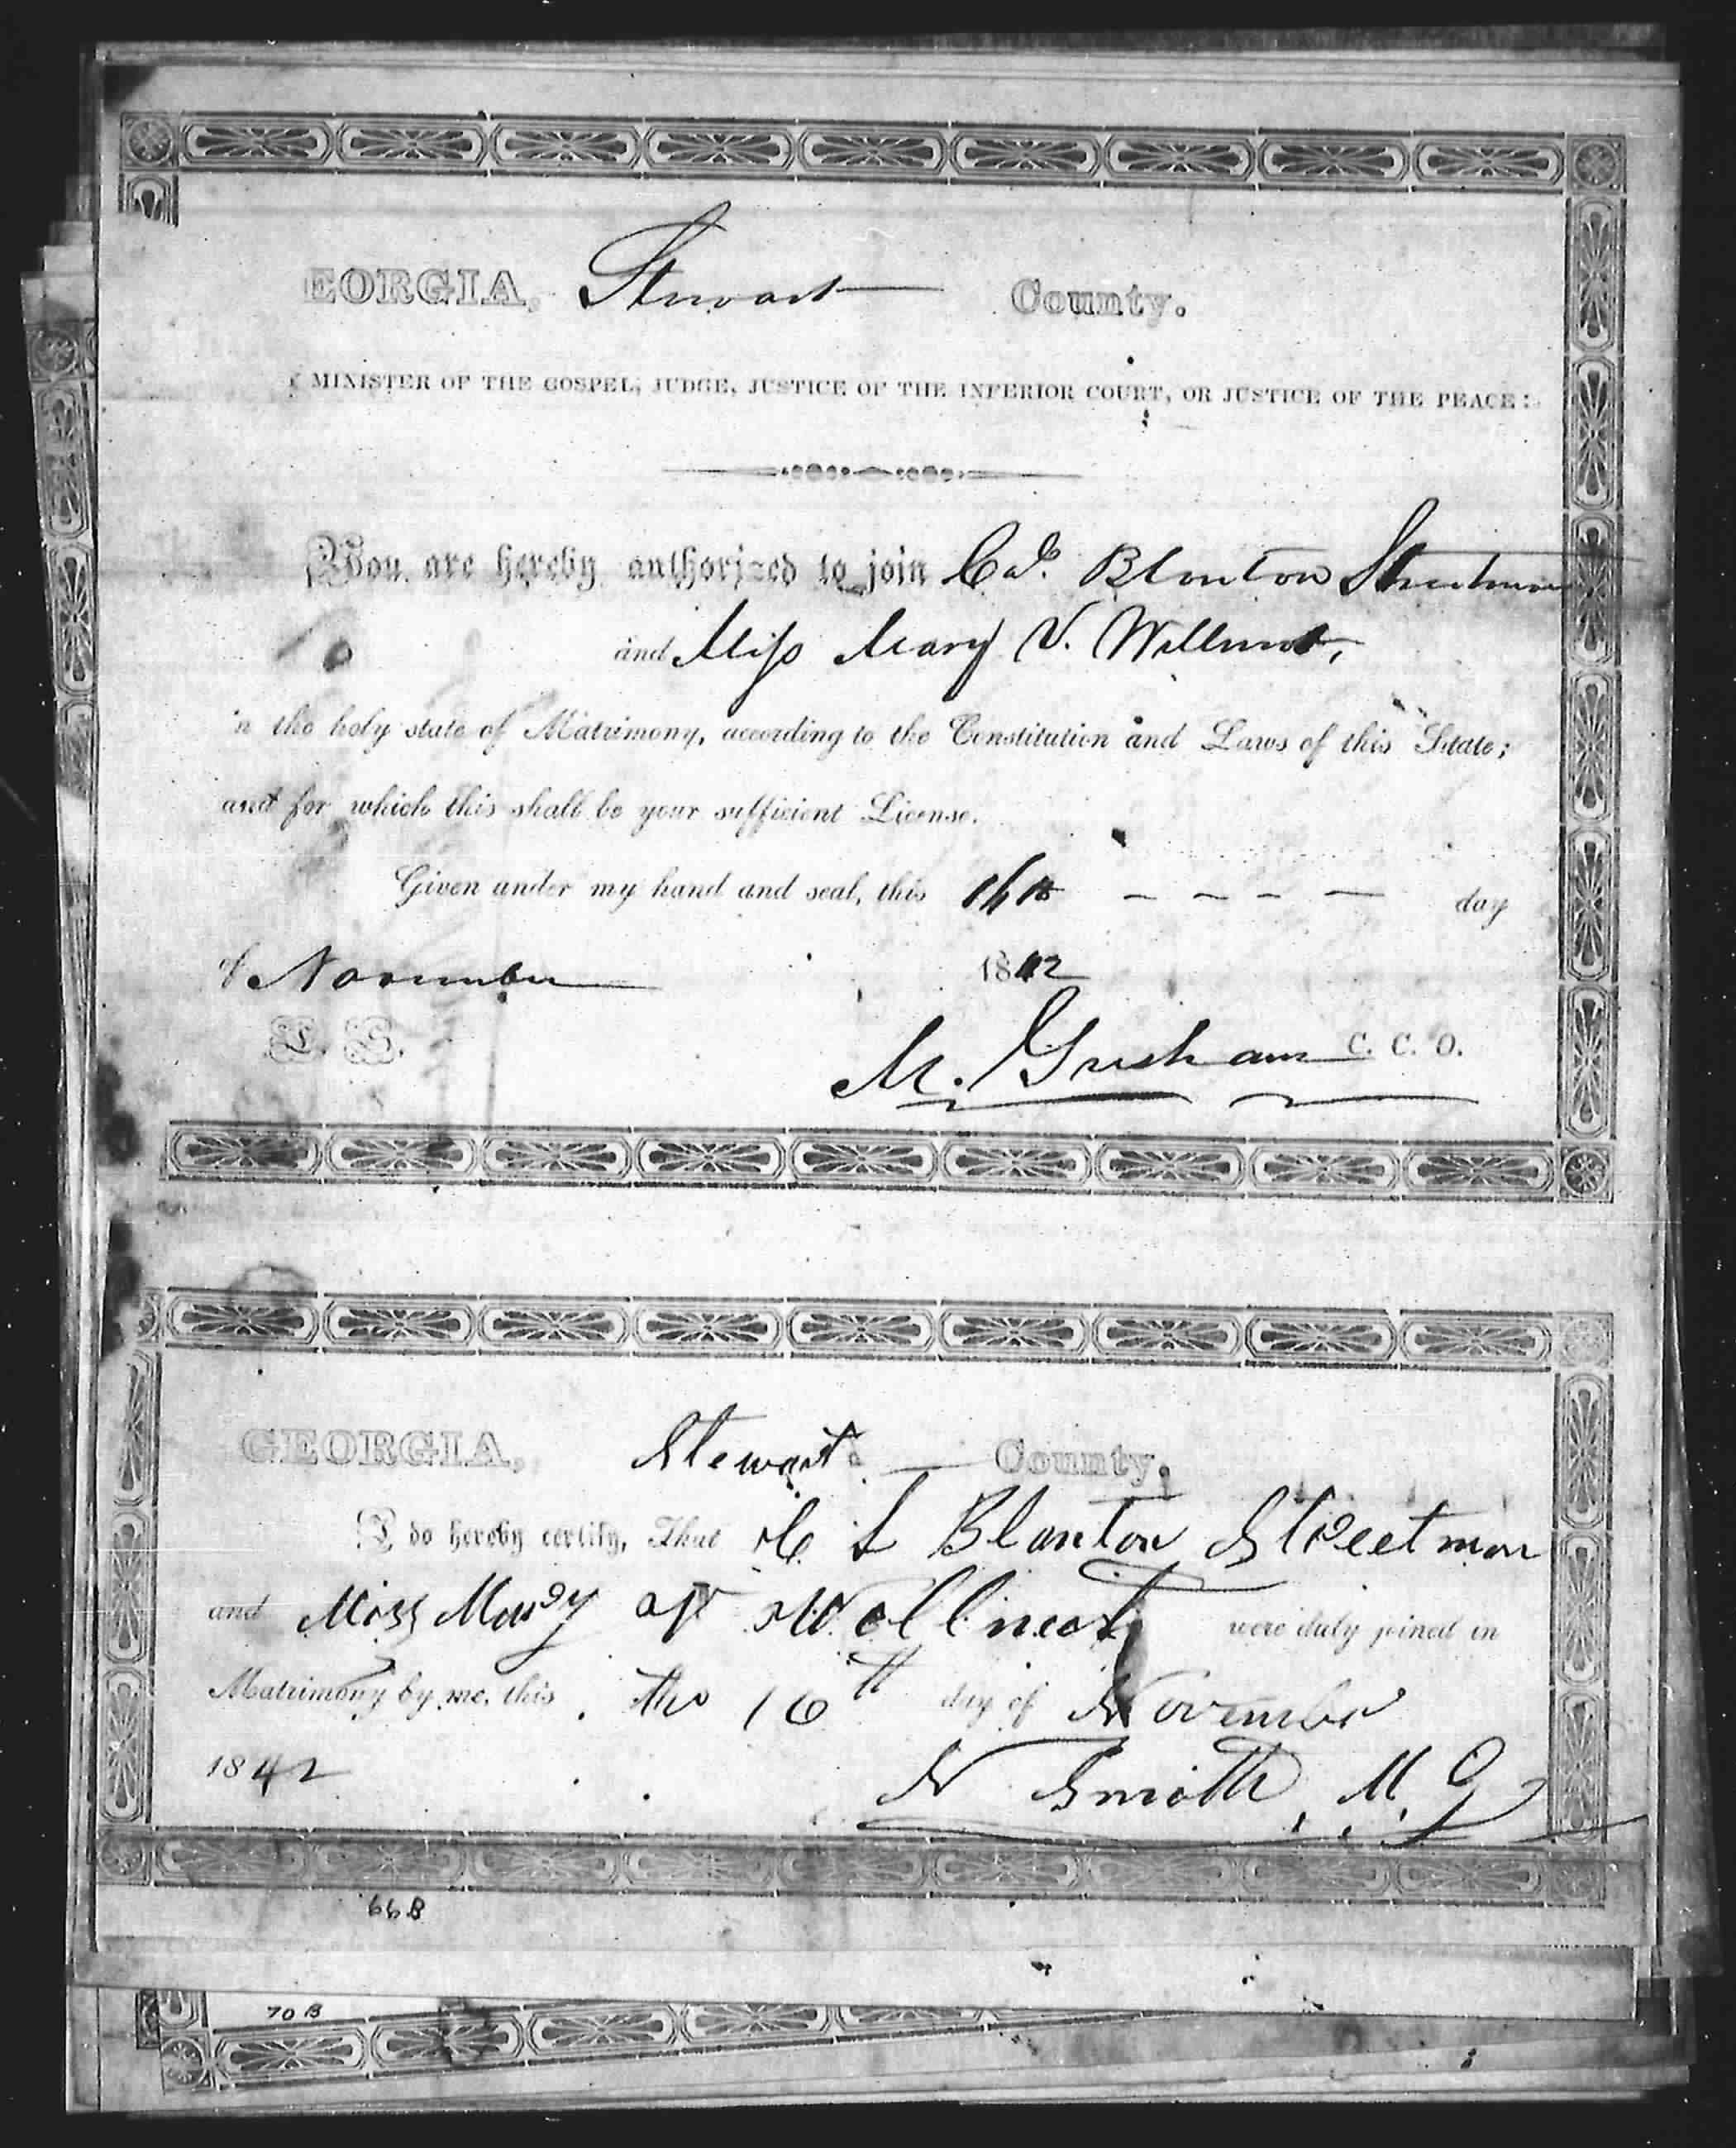 EORGIA, Stewart County.
MINISTER OF THE GOSPEL, JUDGE, JUSTICE OF THE INFERIOR COURT, OR JUSTICE OF THE PEACE:
You are hereby authorized to join Blanton Streetman
and Miss Mary V.
in the holy state of Matrimony, according to the Constitution and Laws of this State;
and for which this shall be your sufficient License.
Given under my hand and seal, this 16th day
of November 1842
L. S.
M. Gresham C. C. O.
GEORGIA, Stewart County.
I, do hereby certify, That Blanton Streetman
and Miss Mary were duly joined in
Matrimony by me, this the 16th day of November
1842
N Smith, M. G
66B
70 B